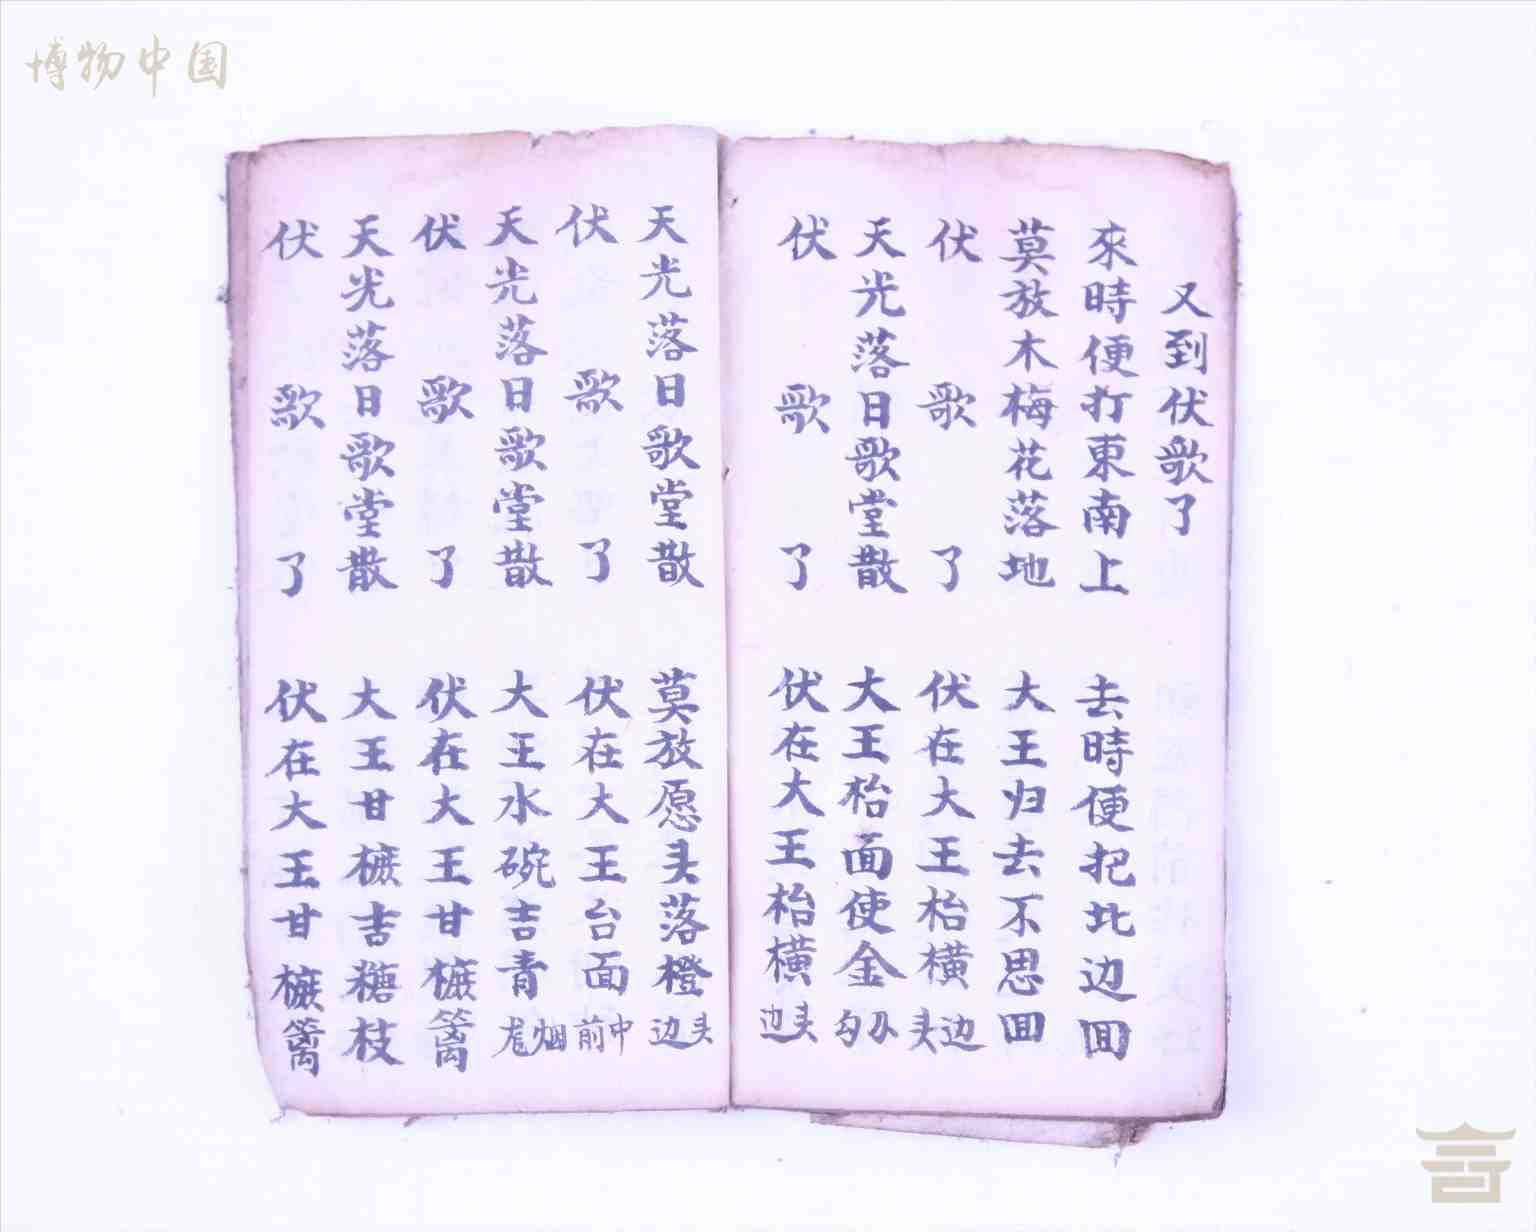 博物中国
又到伏歌了
來時便打東南上 去時便把北边囬
莫放木梅花落地 大王归去不思囬
伏歌了 伏在大王枱横头边
天光落日歌堂散 大王枱面使金
伏歌了 伏在大王枱横边头
天光落日歌堂散 莫放愿头落橙边头
伏歌了 伏在大王台面前中
天光落日歌堂散 大王水碗吉青烟
伏歌了 伏在大王甘樜篱
天光落日歌堂散 大王甘樜吉糖枝
伏歌了 伏在大王甘樜篱